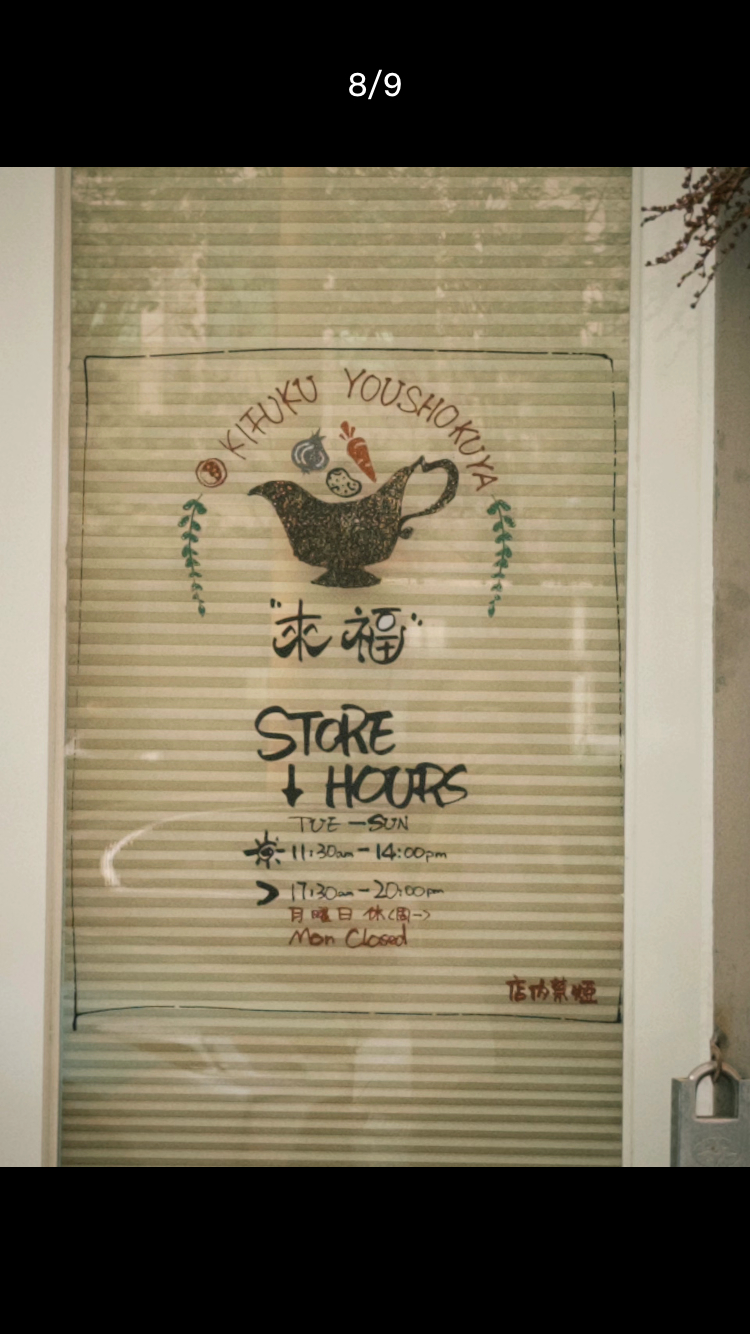 8/9
KIFUKU YOUSHOKUYA
"来福"
STORE
↓ HOURS
TUE—SUN
11:30am-14:00pm
17:30am-20:00pm
月曜日 休(周一)
Mon Closed
店内禁煙